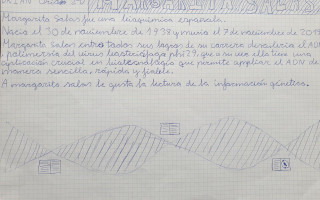 MARGARITA SALAS
Margarita Salas fue una bioquímica española.
Nació el 30 de noviembre de 1938 y murió el 7 de noviembre de 2019
Margarita Salas entre todos sus logros de su carrera descubrió el ADN
polimerasa del virus bacteriófago phi29, que a su vez ello tiene una
aplicación crucial en biotecnología que permite ampliar el ADN de
manera sencilla, rápida y fiable.
A margarita salas le gusta la lectura de la información genética.